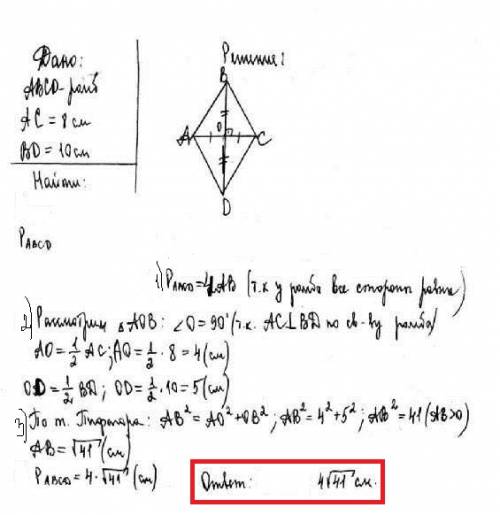 Дано:
ABCD-ромб
AC = 8 см
BD = 10 см
Найти:
P ABCD
Решение:
B
A O C
D
1) P ABCD = 4AB (т.к у ромба все стороны равны)
2) Рассмотрим △ AOB: ∠O = 90° (т.к. AC⊥BD по св-ву ромба)
AO = 1/2 AC; AO = 1/2 · 8 = 4 (см)
OD = 1/2 BD; OD = 1/2 · 10 = 5 (см)
3) По т. Пифагора: AB² = AO² + OB²; AB² = 4² + 5²; AB² = 41 (AB>0)
AB = √41 (см)
P ABCD = 4 · √41 (см)
Ответ: 4√41 см.